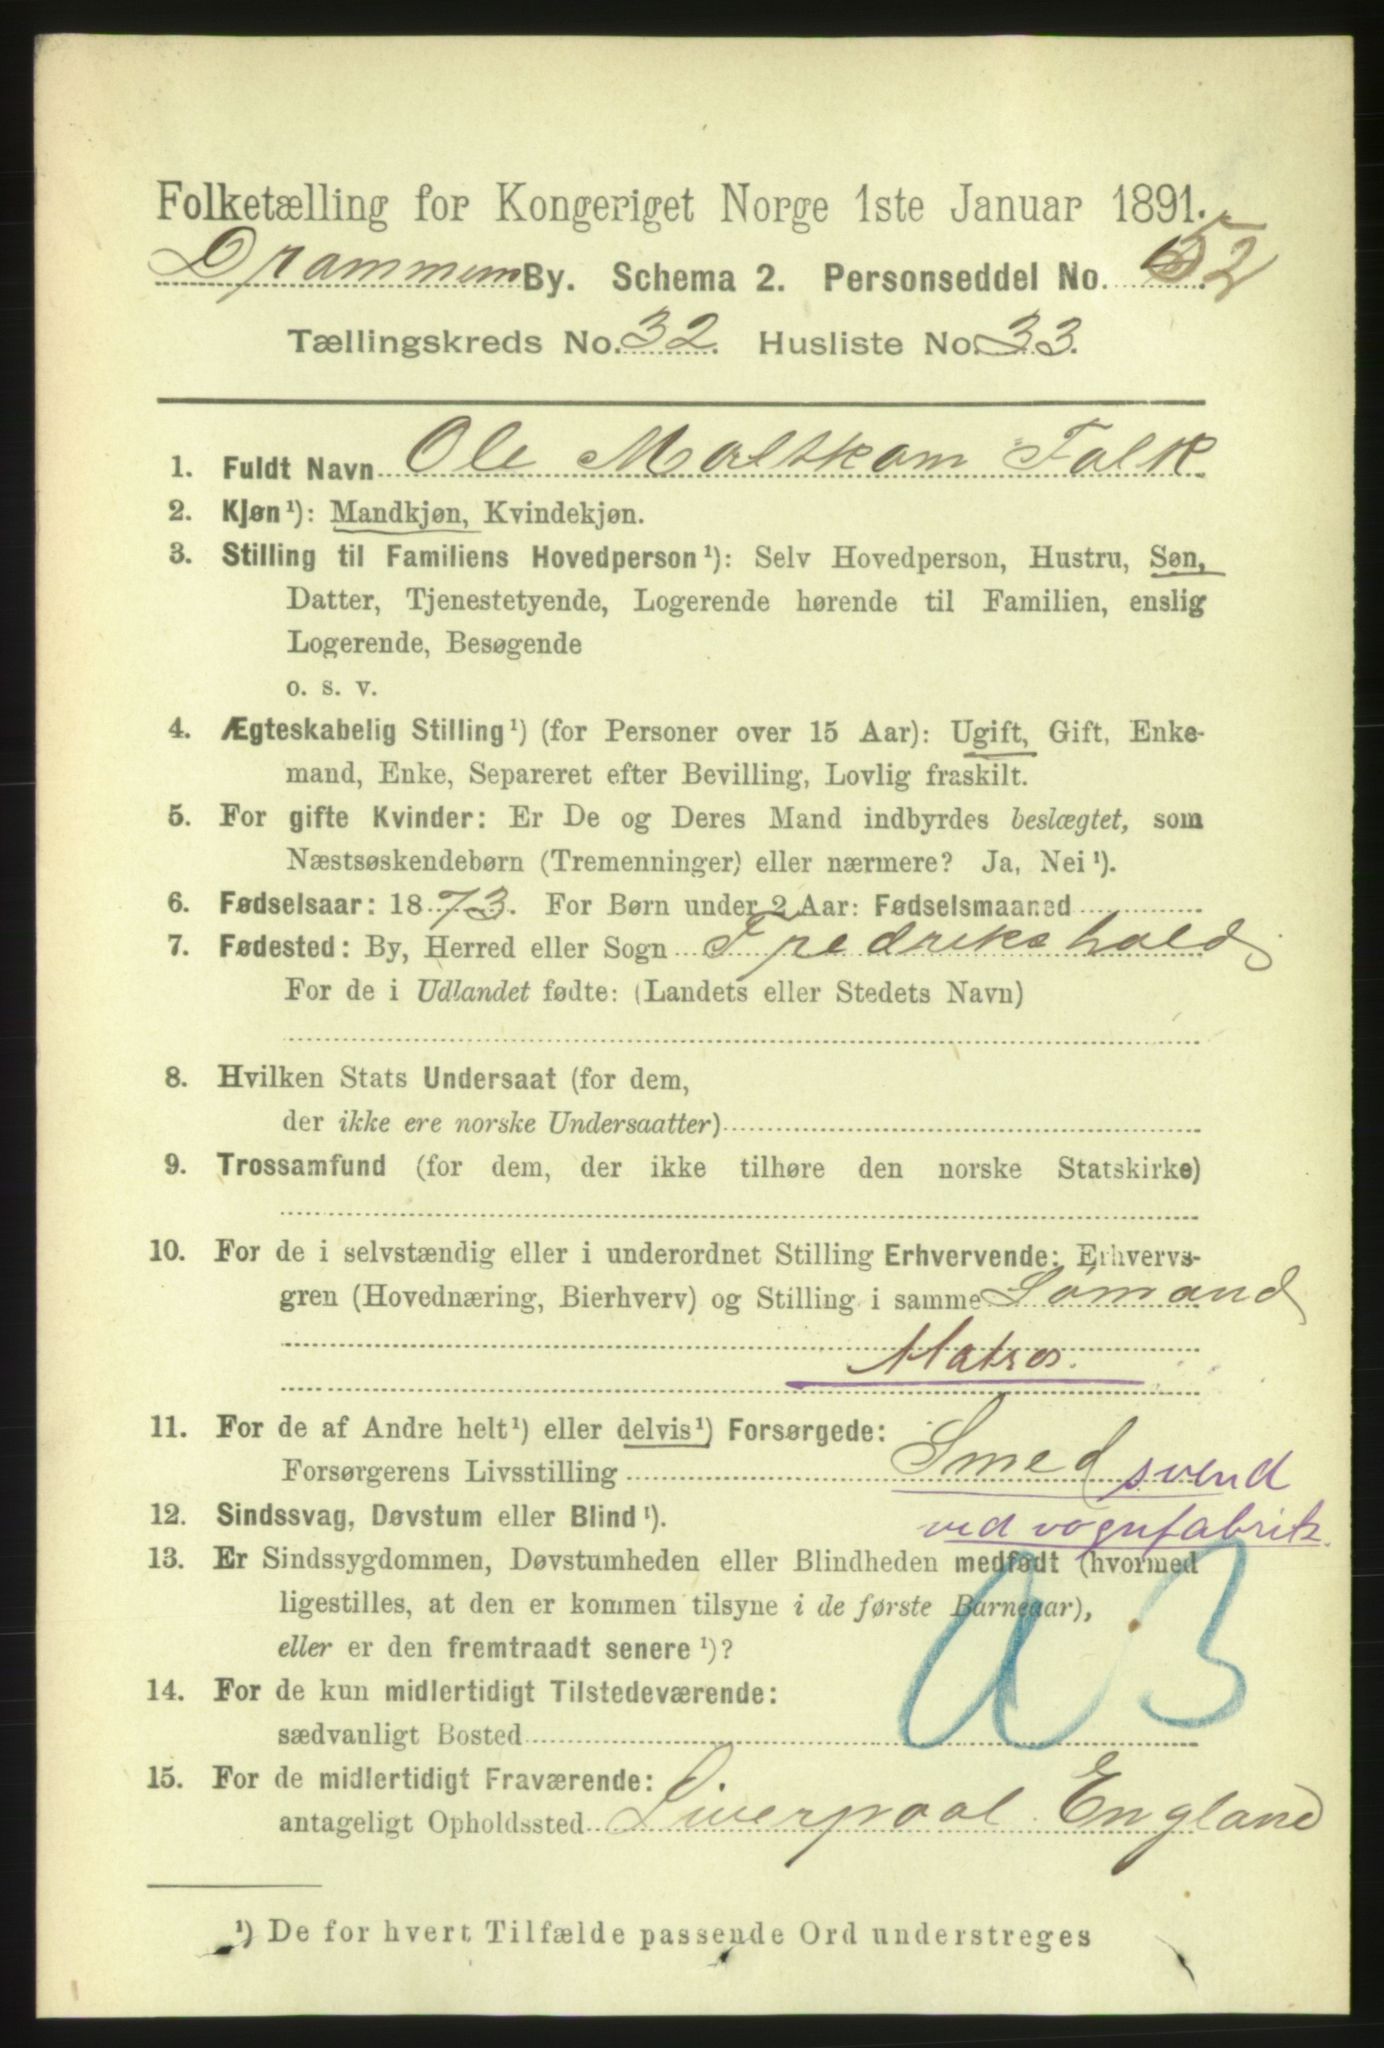 Folketælling for Kongeriget Norge 1ste Januar 1891.
Drammen By. Schema 2. Personseddel No. 52
Tællingskreds No. 32. Husliste No. 33.
1. Fuldt Navn Ole Maltkam Falk
2. Kjøn¹): Mandkjøn, Kvindekjøn.
3. Stilling til Familiens Hovedperson¹): Selv Hovedperson, Hustru, Søn,
Datter, Tjenestetyende, Logerende hørende til Familien, enslig
Logerende, Besøgende
o. s. v.
4. Ægteskabelig Stilling¹) (for Personer over 15 Aar): Ugift, Gift, Enke-
mand, Enke, Separeret efter Bevilling, Lovlig fraskilt.
5. For gifte Kvinder: Er De og Deres Mand indbyrdes beslægtet, som
Næstsøskendebørn (Tremenninger) eller nærmere? Ja, Nei¹).
6. Fødselsaar: 1873. For Børn under 2 Aar: Fødselsmaaned
7. Fødested: By, Herred eller Sogn Fredrikshald
For de i Udlandet fødte: (Landets eller Stedets Navn)
8. Hvilken Stats Undersaat (for dem,
der ikke ere norske Undersaatter)
9. Trossamfund (for dem, der ikke tilhøre den norske Statskirke)
10. For de i selvstændig eller i underordnet Stilling Erhvervende: Erhvervs-
gren (Hovednæring, Bierhverv) og Stilling i samme Sømand
Matros.
11. For de af Andre helt¹) eller delvis¹) Forsørgede:
Forsørgerens Livsstilling Smed svend
ved vognfabrik.
12. Sindssvag, Døvstum eller Blind¹).
13. Er Sindssygdommen, Døvstumheden eller Blindheden medfødt (hvormed
ligestilles, at den er kommen tilsyne i de første Barneaar),
eller er den fremtraadt senere¹)?
14. For de kun midlertidigt Tilstedeværende:
sædvanligt Bosted
15. For de midlertidigt Fraværende:
antageligt Opholdssted Liverpool England
¹) De for hvert Tilfælde passende Ord understreges